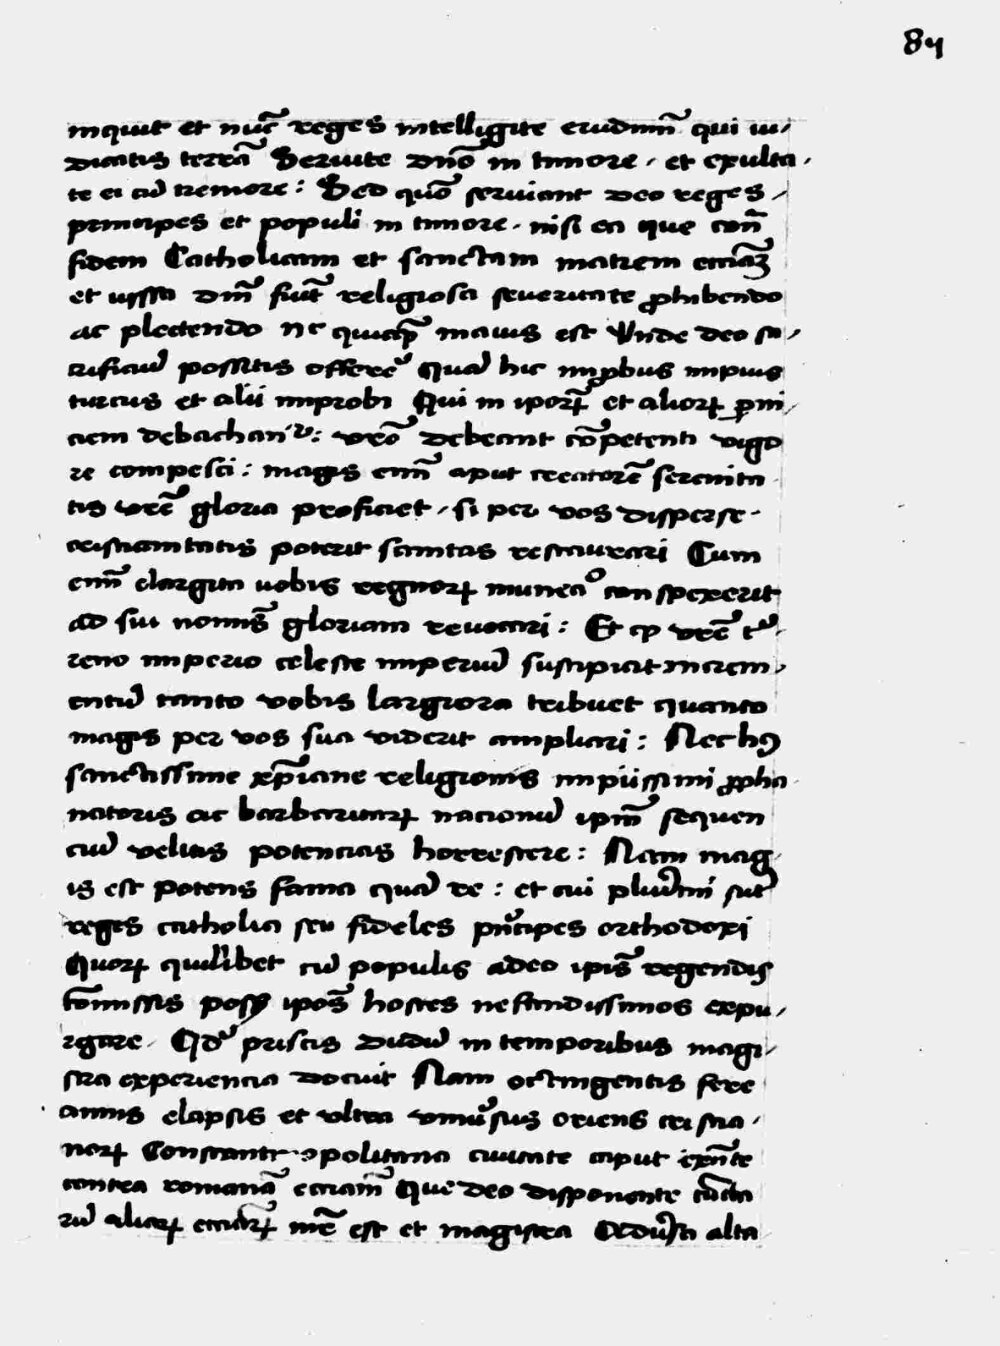 84
inquit et nūc reges intelligite erudimī qui iu-
dicatis terrā Seruite dño in timore. et exulta-
te ei cū tremore: Sed quō seruiant deo reges
principes et populi in timore. nisi ea que con̄
fidem Catholicam et sanctam matrem ecciaȝ
et iussa dm̄ fiūt religiosa seueritate ꝓhibendo
ac plectendo
est Unde deo sa-
crificiū possitis offere Quā hic imꝓbus impius
turcus et alii improbi Qui in ipoꝝ et alioꝝ ꝑni
ciem debachant: vr̄o debeant cōpetenti vigo
re compesci: magis enī̄ aput creatorē serenita
tis vrē gloria proficiet. si per vos disperse
cristianitatis poterit sanitas restaurari Cum
enī̄ elargita uobis regnoꝝ munera conspexerit
ad sui nomīs gloriam reuocari: Et ꝙ vrē t
reno imperio celeste imperiū suscipiat increm-
entū tanto vobis largiora tribuet quanto
magis per vos sua viderit ampliari: Nec hꝰ
sanctissime xp̄iane religionis impiissimi ꝓpha
natoris ac barbaricaꝝ nacionū ipm̄ sequen
ciū velitis potencias horrescere: Nam mag
is est potens fama quā re: et cui plurimi sūt
reges catholici seu fideles pn̄cipes orthodoxi
Quoꝝ quilibet cū populis adeo ipīs regendis
cōmissis posset ipōs hostes nefandissimos expu-
rgare. Qd priscis dudū in temporibus magi-
stra experiencia docuit Nam octingentis fere
annis elapsis et vltra vniuersus oriens cristia-
noꝝ Constantinopolitana ciuitate caput exn̄te
contra romanā ecciam̄ Que deo disponente cūcta
rū aliaꝝ ecciaꝝ mr̄ est et magistra
alta